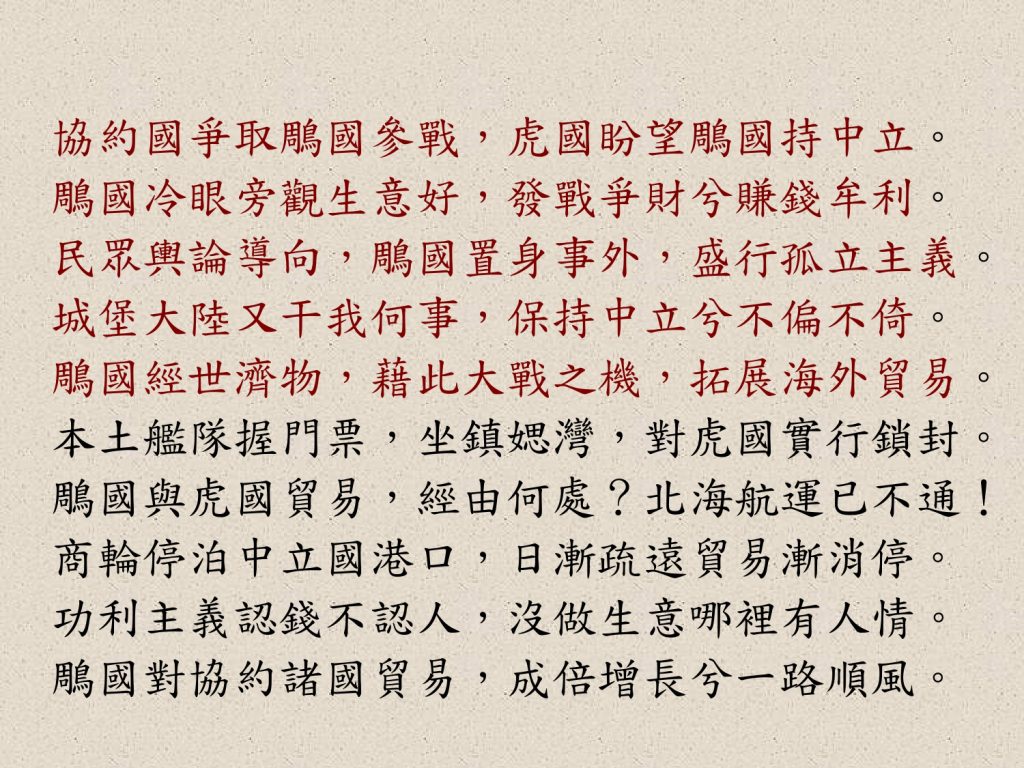 協約國爭取鵰國參戰，虎國盼望鵰國持中立。
鵰國冷眼旁觀生意好，發戰爭財兮賺錢牟利。
民眾輿論導向，鵰國置身事外，盛行孤立主義。
城堡大陸又干我何事，保持中立兮不偏不倚。
鵰國經世濟物，藉此大戰之機，拓展海外貿易。
本土艦隊握門票，坐鎮媤灣，對虎國實行鎖封。
鵰國與虎國貿易，經由何處？北海航運已不通！
商輪停泊中立國港口，日漸疏遠貿易漸消停。
功利主義認錢不認人，沒做生意哪裡有人情。
鵰國對協約諸國貿易，成倍增長兮一路順風。